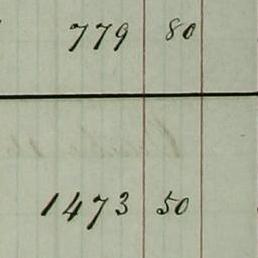 779 80
1473 50